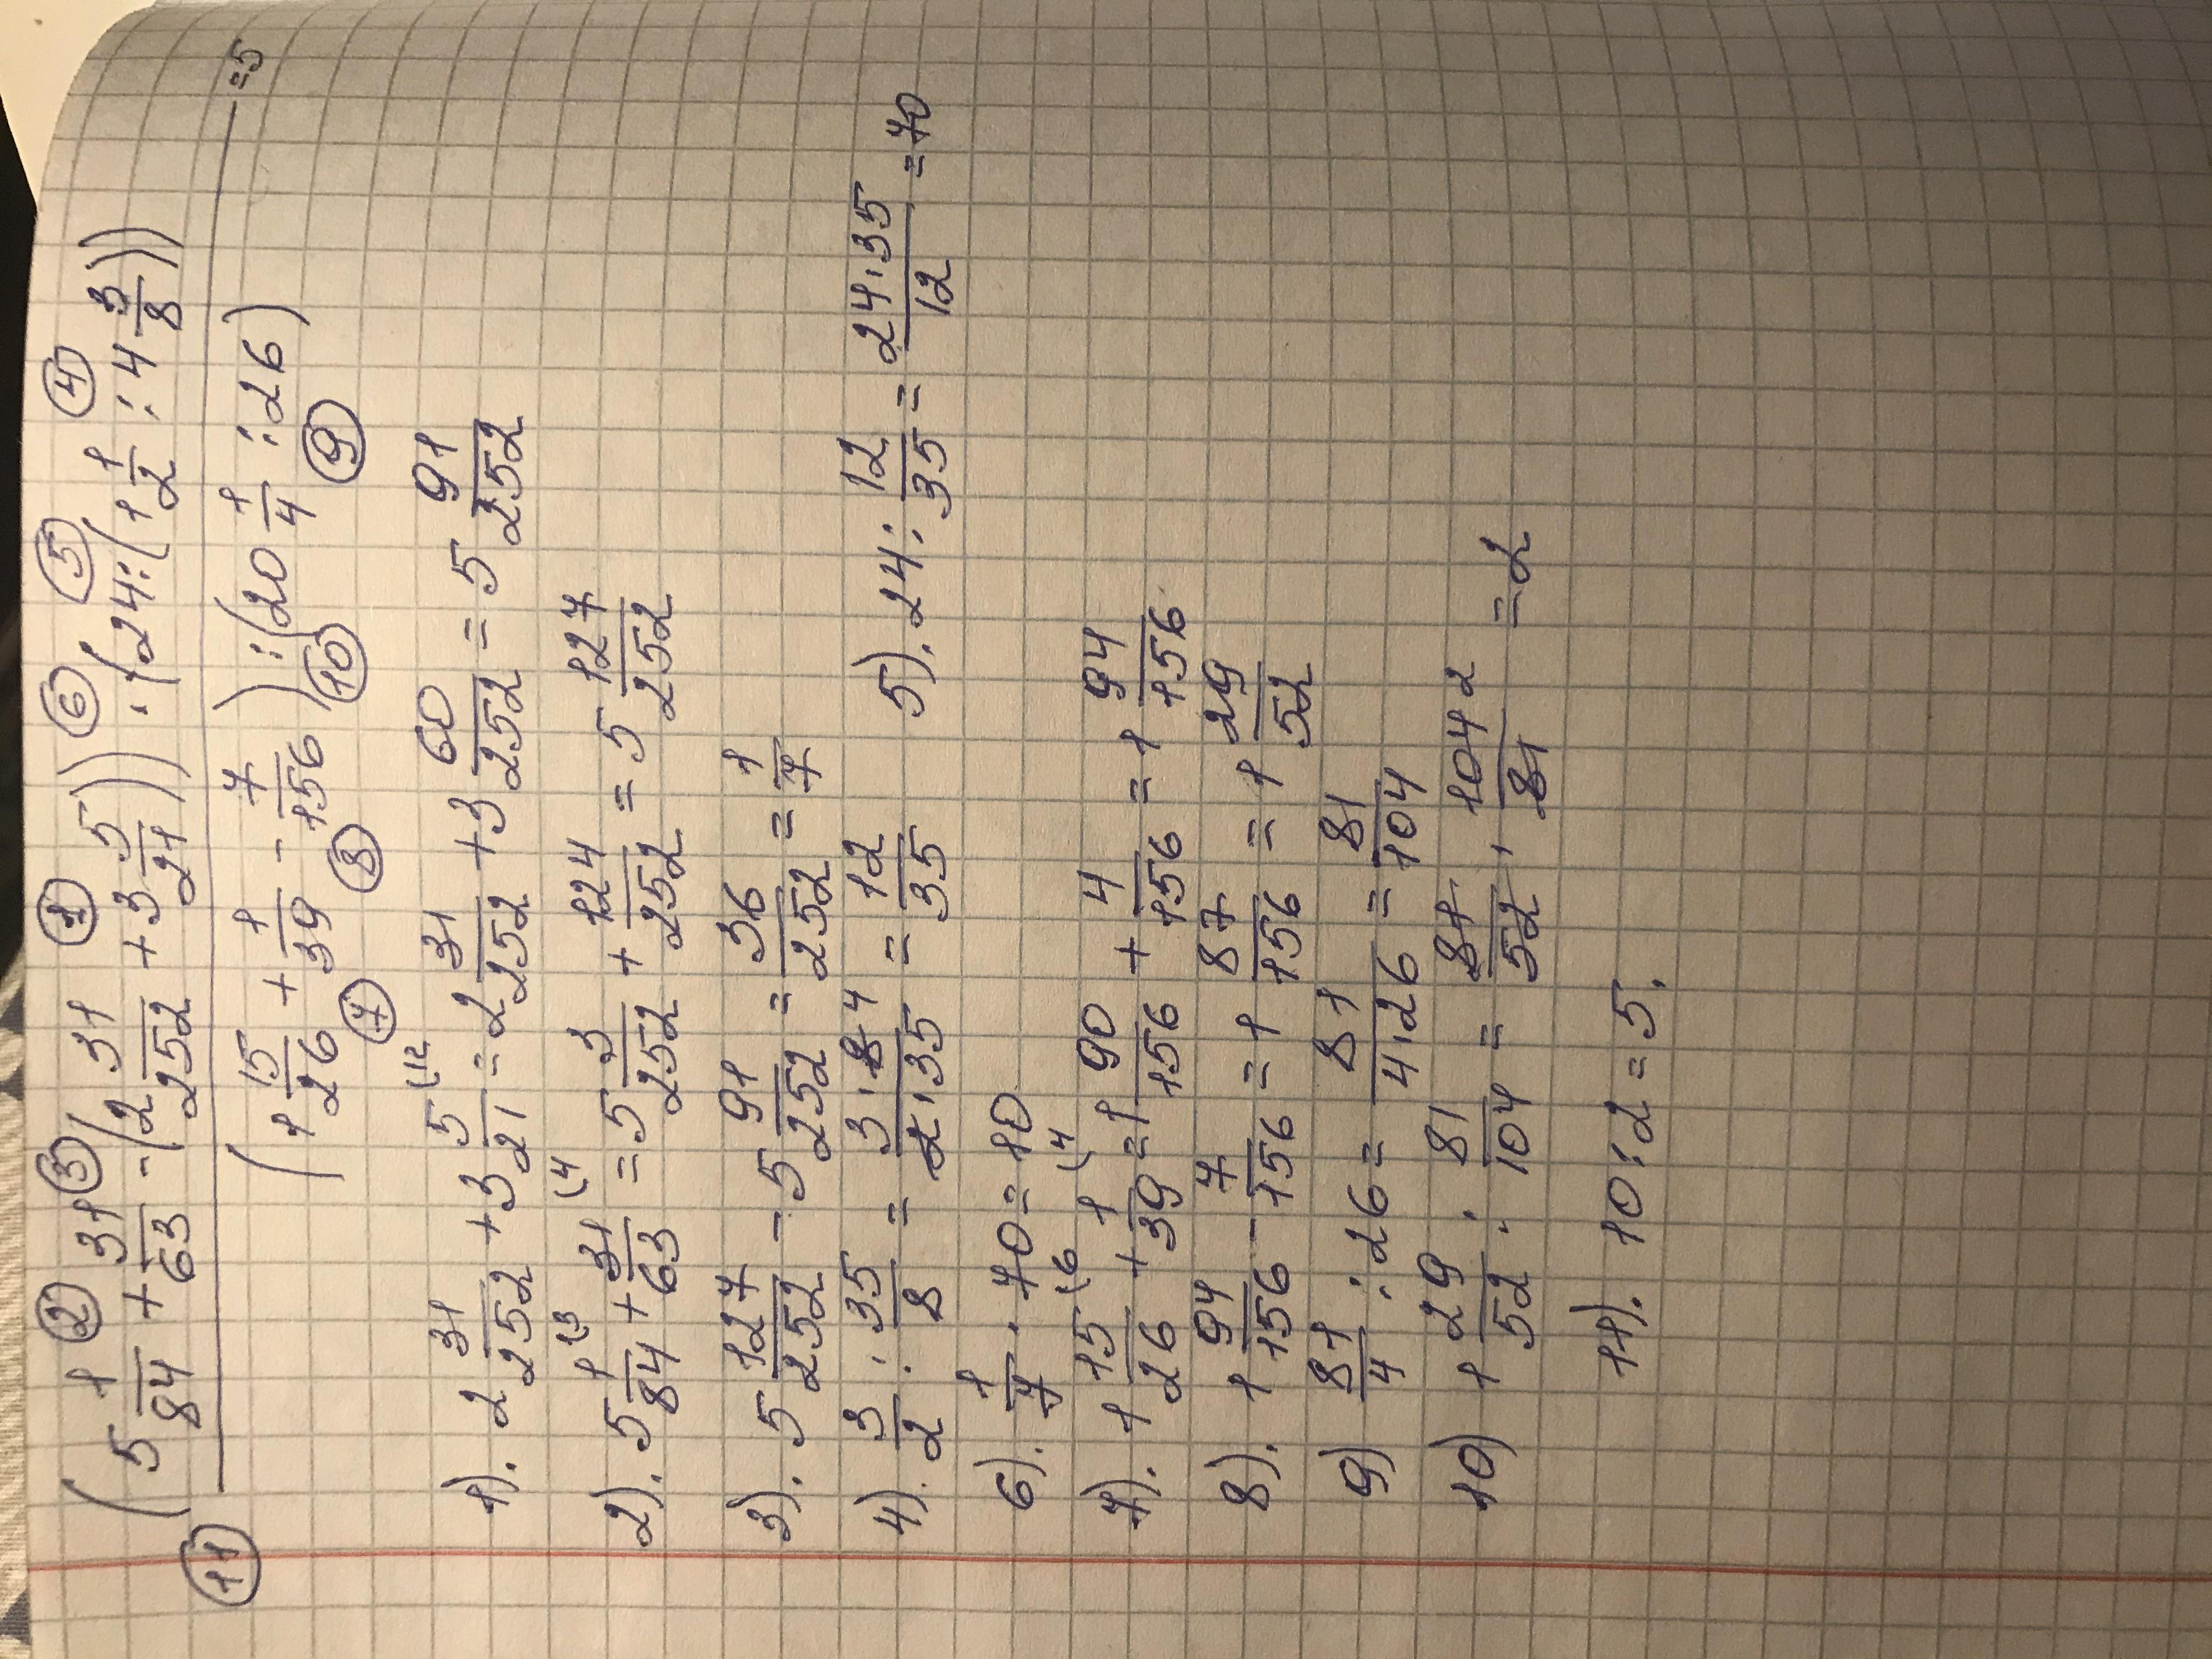 ② ③ ① ⑥ ⑤ ④
(5 1/84 + 31/63 - (2 31/252 + 3 5/21)) : (24:(1 1/2 : 4 3/8))
⑪ ———— = 5
(1 15/26 + 1/39 - 7/156) : (20 1/4 : 26)
⑦ ⑧ ⑩ ⑨
1). 2 31/252 + 3 5/21 (12 = 2 31/252 + 3 60/252 = 5 91/252
2). 5 1/84 (3 + 31/63 (4 = 5 3/252 + 124/252 = 5 127/252
3). 5 127/252 - 5 91/252 = 36/252 = 1/7
4). 3/2 : 35/8 = 3·8 4/2·35 = 12/35 5). 24 : 12/35 = 24·35/12 = 70
6). 1/7 · 70 = 10
7). 1 15/26 (6 + 1/39 (4 = 1 90/156 + 4/156 = 1 94/156
8). 1 94/156 - 7/156 = 1 87/156 = 1 29/52
9) 81/4 : 26 = 81/4·26 = 81/104
10) 1 29/52 : 81/104 = 81/52 · 104 2/81 = 2
11). 10 : 2 = 5.